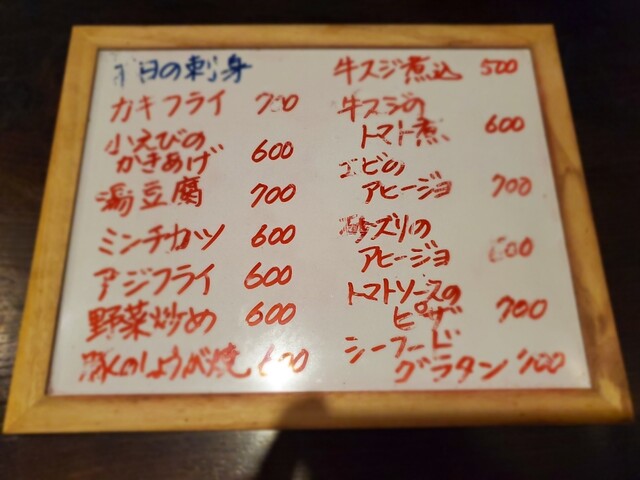 本日の刺身
カキフライ 700
小えびの
かきあげ 600
湯豆腐 700
ミンチカツ 600
アジフライ 600
野菜炒め 600
豚のしょうが焼 600
牛スジ煮込 500
牛スジの
トマト煮 600
エビの
アヒージョ 700
砂ズリの
アヒージョ 600
トマトソースの
ピザ 700
シーフード
グラタン 700